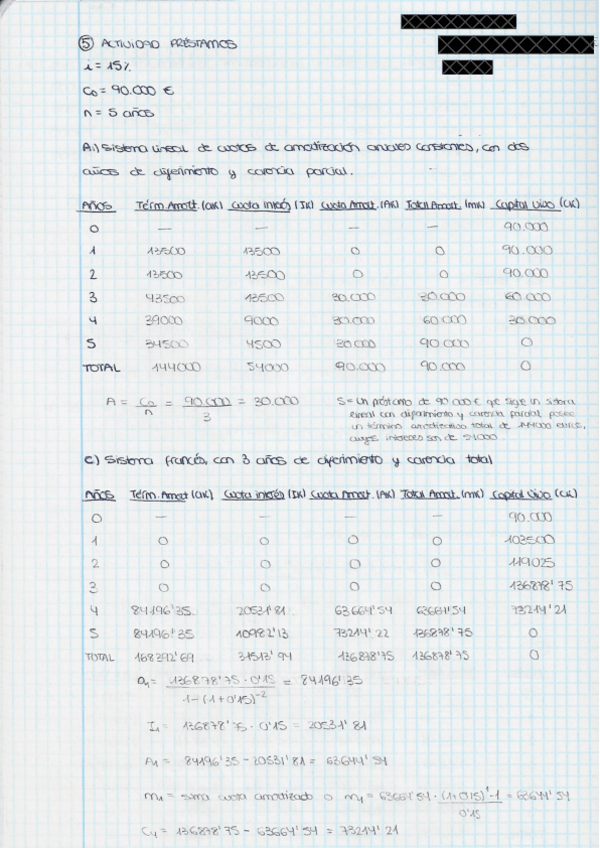 ⑤ ACTIVIDAD PRÉSTAMOS
i = 15%
C₀ = 90.000 €
n = 5 años
A.) Sistema lineal de cuotas de amortización anuales constantes, con dos
años de diferimiento y carencia parcial.
AÑOS Térm. Amort. (aK) Cuota interés (IK) Cuota Amort. (AK) Total Amort. (mK) Capital Vivo (CK)
0 — — — — 90.000
1 13500 13500 0 0 90.000
2 13500 13500 0 0 90.000
3 43500 13500 30.000 30.000 60.000
4 39000 9000 30.000 60.000 30.000
5 34500 4500 30.000 90.000 0
TOTAL 144000 54000 90.000 90.000 0
A = C₀/n = 90.000/3 = 30.000
S = Un préstamo de 90.000 € que sigue un sistema
lineal con diferimiento y carencia parcial posee
un término amortizativo total de 144000 euros,
cuyos intereses son de 54000
C) Sistema francés, con 3 años de diferimiento y carencia total
AÑOS Térm. Amort (aK) Cuota interés (IK) Cuota Amort. (AK) Total Amort. (mK) Capital Vivo (CK)
0 — — — — 90.000
1 0 0 0 0 103500
2 0 0 0 0 119025
3 0 0 0 0 136878'75
4 84196'35 20531'81 63664'54 63664'54 73214'21
5 84196'35 10982'13 73214'22 136878'75 0
TOTAL 168392'69 31513'94 136878'75 136878'75 0
a₁ = 136878'75 · 0'15 / 1-(1+0'15)⁻² = 84196'35
I₁ = 136878'75 · 0'15 = 20531'81
A₁ = 84196'35 - 20531'81 = 63644'54
m₁ = suma cuota amortizado o m₁ = 63664'54 · (1+0'15)¹-1 / 0'15 = 63644'54
C₄ = 136878'75 - 63664'54 = 73214'21